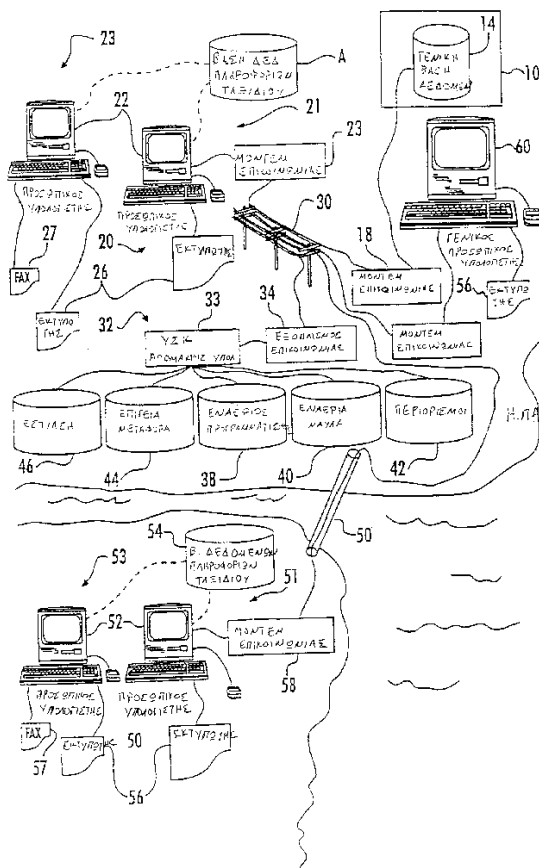 23
ΒΑΣΗ ΔΕΔ
ΠΛΗΡΟΦΟΡΙΩΝ
ΤΑΞΙΔΙΟΥ
A
14
ΓΕΝΙΚΗ
ΒΑΣΗ
ΔΕΔΟΜΕΝ
10
22
21
ΜΟΝΤΕΜ
ΕΠΙΚΟΙΝΩΝΙΑΣ
23
60
ΠΡΟΣΩΠΙΚΟΣ
ΥΠΟΛΟΓΙΣΤΗΣ
ΠΡΟΣΩΠΙΚΟΣ
ΥΠΟΛΟΓΙΣΤΗΣ
30
27
FAX
20
ΕΚΤΥΠΩΤΗΣ
18
ΓΕΝΙΚΟΣ
ΠΡΟΣΩΠΙΚΟΣ
ΥΠΟΛΟΓΙΣΤΗΣ
26
ΜΟΝΤΕΜ
ΕΠΙΚΟΙΝΩΝΙΑΣ
56
ΕΚΤΥΠΩ
ΤΗΣ
ΕΚΤΥΠΩ
ΤΗΣ
32
33
34
ΥΣΚ
ΕΞΟΠΛΙΣΜΟΣ
ΕΠΙΚΟΙΝΩΝΙΑΣ
ΜΟΝΤΕΜ
ΕΠΙΚΟΙΝΩΝΙΑΣ
ΕΣΤΙΑΣΗ
ΕΠΙΓΕΙΑ
ΜΕΤΑΦΟΡΑ
ΕΝΑΕΡΙΟΣ
ΠΡΟΓΡΑΜΜΑΤΙΣΜ
ΕΝΑΕΡΙΑ
ΝΑΥΛΑ
ΠΕΡΙΟΡΙΣΜΟΙ
Η.ΠΑ
46
44
38
40
42
50
54
Β. ΔΕΔΟΜΕΝΩΝ
ΠΛΗΡΟΦΟΡΙΩΝ
ΤΑΞΙΔΙΟΥ
53
51
52
ΜΟΝΤΕΜ
ΕΠΙΚΟΙΝΩΝΙΑΣ
58
ΠΡΟΣΩΠΙΚΟΣ
ΥΠΟΛΟΓΙΣΤΗΣ
ΠΡΟΣΩΠΙΚΟΣ
ΥΠΟΛΟΓΙΣΤΗΣ
FAX
57
ΕΚΤΥΠΩΤΗΣ
50
ΕΚΤΥΠΩΤΗΣ
56